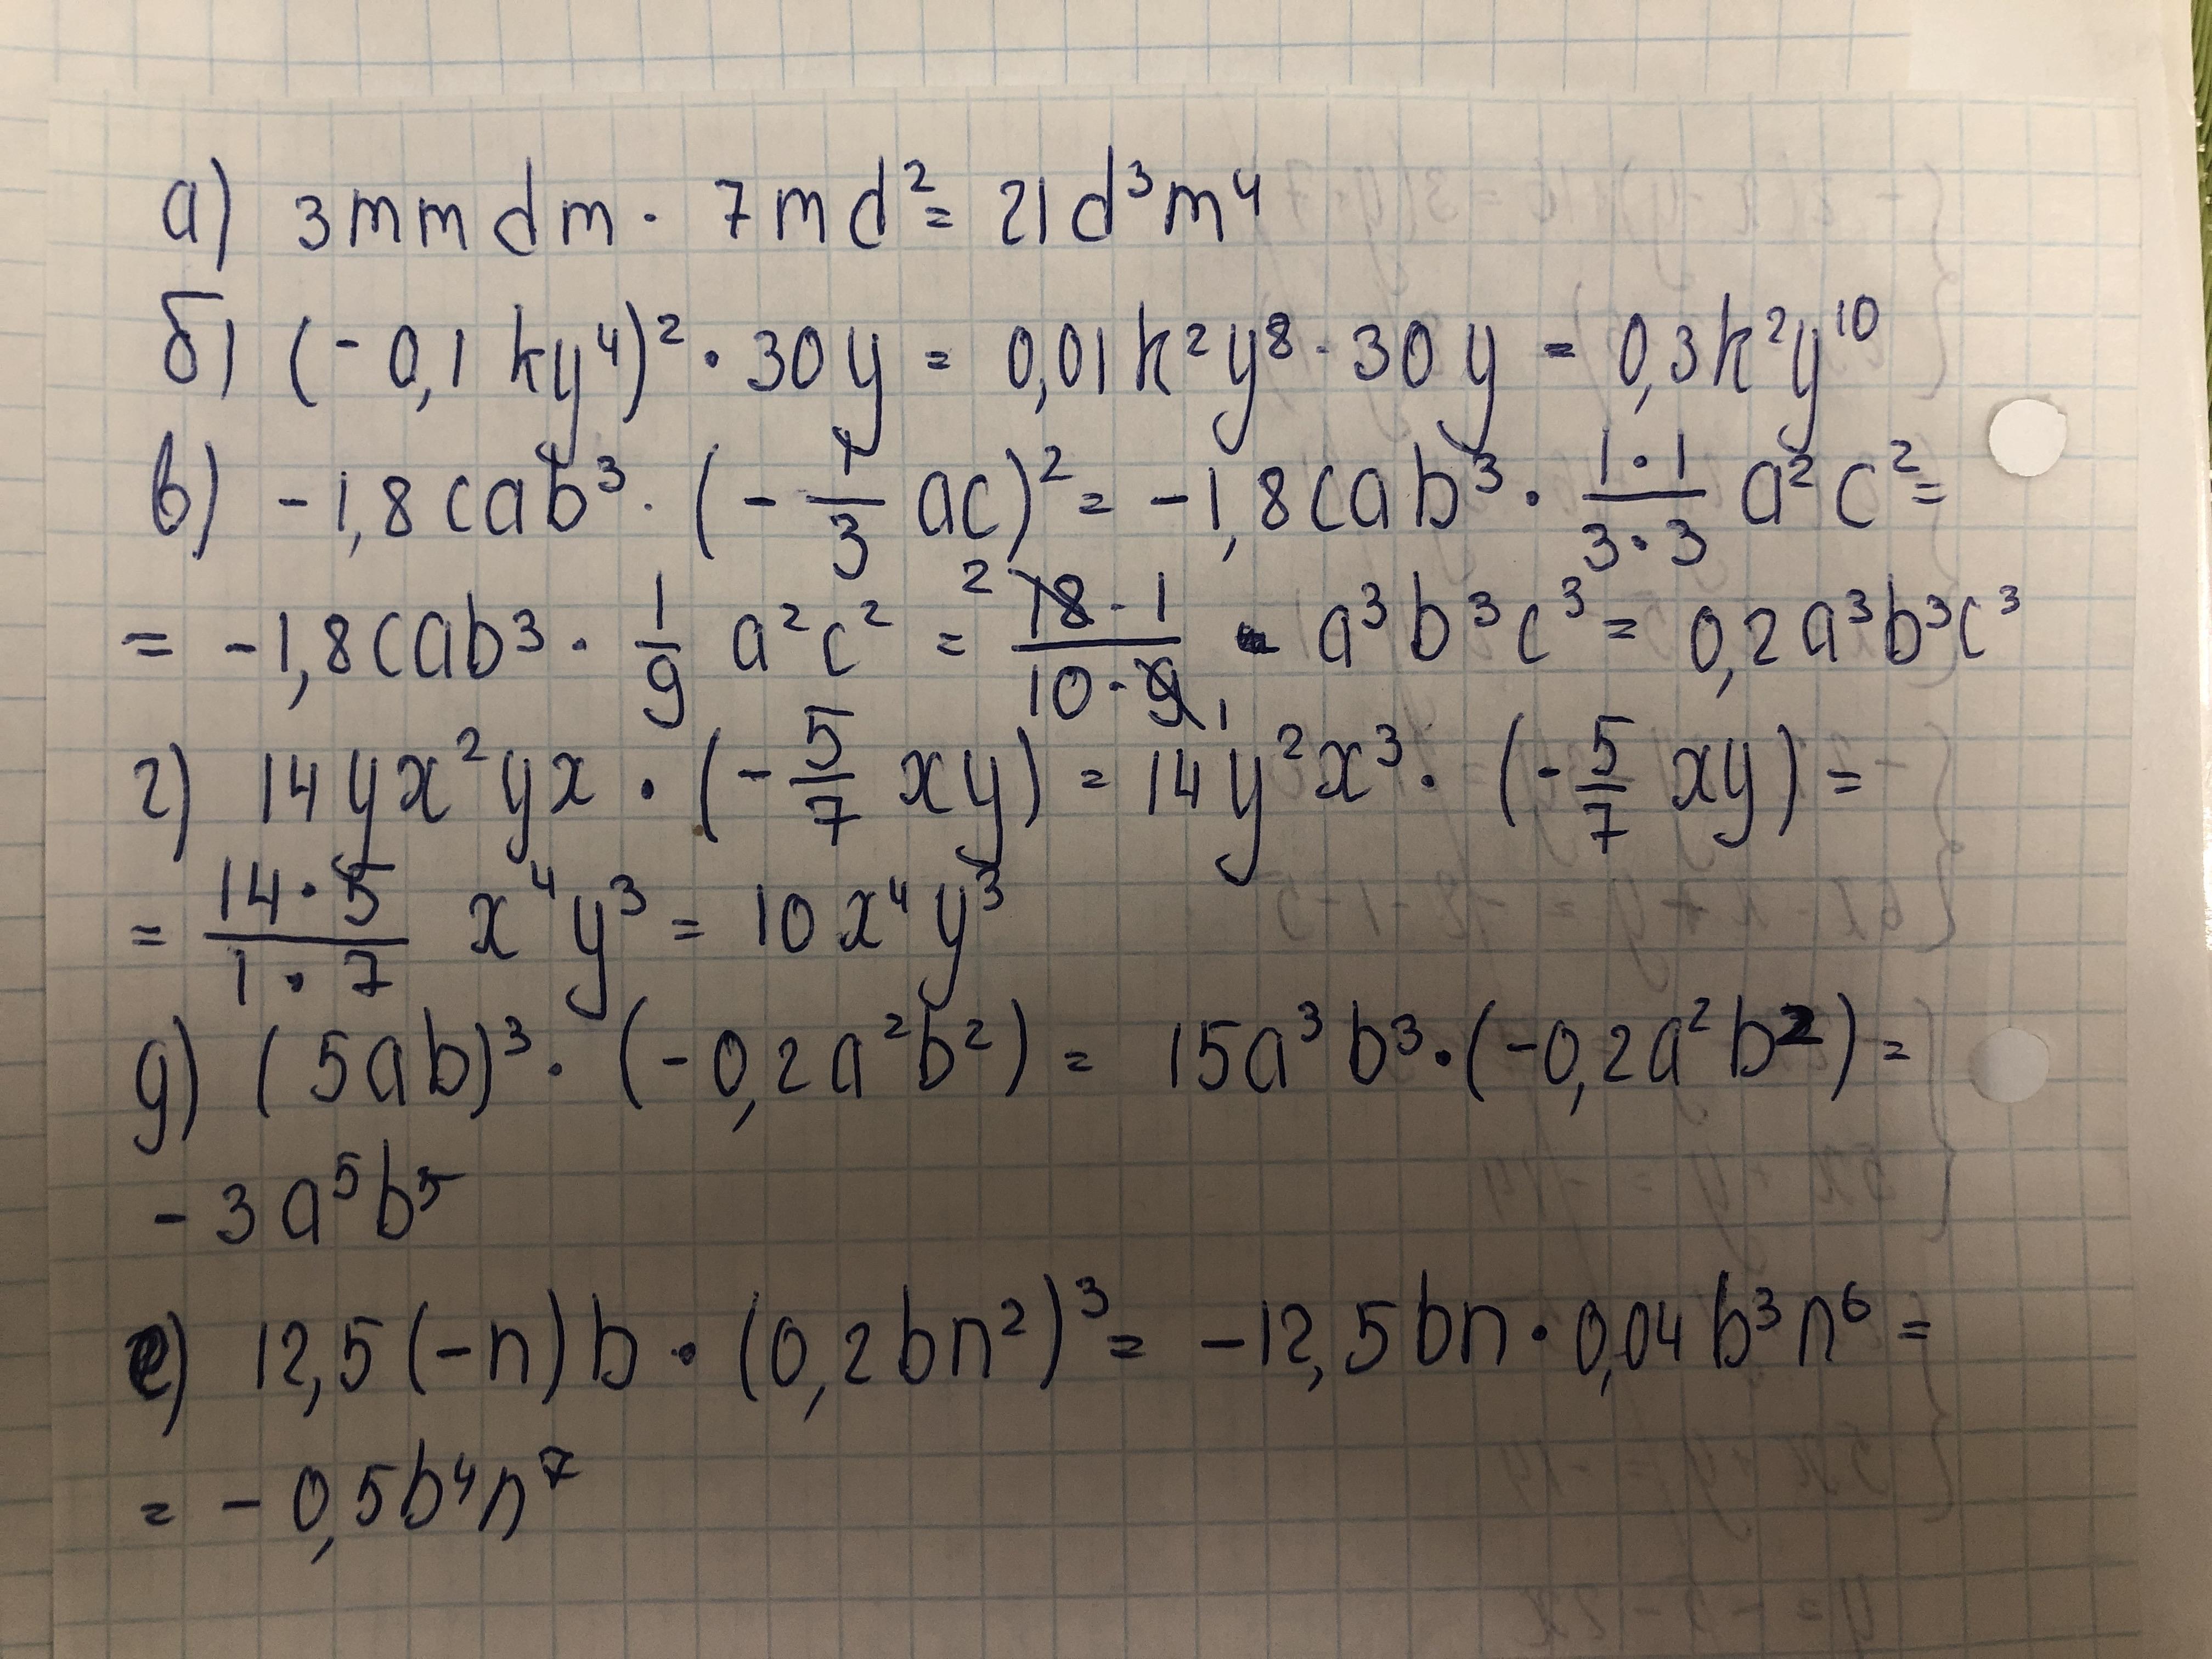 а) 3mmdm · 7md² = 21d³m⁴
б) (-0,1ky⁴)² · 30y = 0,01k²y⁸ · 30y = 0,3k²y¹⁰
в) -1,8cab³ · (-1/3 ac)² = -1,8cab³ · 1·1/3·3 a²c² =
= -1,8cab³ · 1/9 a²c² = 2 18·1/10·9 1 a³b³c³ = 0,2a³b³c³
г) 14yx²yx · (-5/7 xy) = 14y²x³ · (-5/7 xy) =
= 14·5/1·7 x⁴y³ = 10x⁴y³
д) (5ab)³ · (-0,2a²b²) = 15a³b³ · (-0,2a²b²) =
-3a⁵b⁵
е) 12,5(-n)b · (0,2bn²)³ = -12,5bn · 0,04b³n⁶ =
= -0,5b⁴n⁷